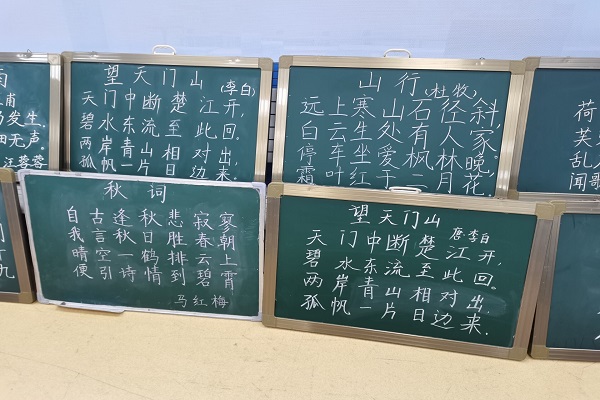 雨
甫
发生.
无声.
江蓉蓉
望天门山(李白)
天门中断楚江开,
碧水东流至此回.
两岸青山相对出,
孤帆一片日边来.
山行(杜牧)
远上寒山石径斜,
白云生处有人家.
停车坐爱枫林晚,
霜叶红于二月花.
荷
芙
乱入
闻歌
九
秋词
自古逢秋悲寂寥
我言秋日胜春朝
晴空一鹤排云上
便引诗情到碧霄
马红梅
望天门山 唐李白
天门中断楚江开,
碧水东流至此回.
两岸青山相对出,
孤帆一片日边来.